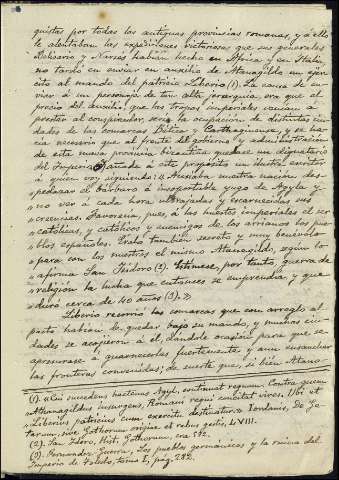 quistas por todas las antiguas provincias romanas, y á ello
le alentaban las expediciones victoriosas que sus generales
Belisario y Narsés habían hecho en África y en Italia,
no tardó en enviar en auxilio de Atanagildo un ejér-
cito al mando del patricio Liberio (1). La causa de en-
viar á un personaje de tan alta gerarquía, era que el
precio del auxilio que las tropas imperiales venían á
prestar al conspirador, sería la ocupación de distintas ciu-
dades de las comarcas Bética y Carthaginense, y se ha-
cía necesario que al frente del gobierno y administración
de esta nueva provincia bizantina un dignatario
del Imperio. á este propósito un ilustre escritor
á quien voy siguiendo: « Ansiaba nuestra nación des-
»pedazar el bárbaro é insoportable yugo de Agila y
»no ver á cada hora ultrajadas y escarnecidas sus
»creencias. Favorecía, pues, á las huestes imperiales el ser
»católicas, y católicos y enemigos de los arrianos los pue-
»blos españoles. Éralo también secreto y muy benévolo
»para con los nuestros el mismo Atanagildo, según lo
»afirma San Isidoro (2). por tanto, guerra de
»religión la lucha que entonces se emprendía, y que
»duró cerca de 40 años (3).»
Liberio recorrió las comarcas que con arreglo al
pacto habían de quedar bajo su mando, y muchas ciu-
dades se acogieron á él, dándole ocasión para que se
apresurase á guarnecerlas fuertemente y aun ensanchar
las fronteras convenidas; de suerte que, si bien Atana-
(1). «Cui succedens hactenus Agil, continuat regnum. Contra quem
»Athanagildus insurgens, Romani regni concitat vires. Ubi et
»Liberius patricius cum exercitu destinatur». Iordanis, De Ge-
tarum, sive Gothorum origine et rebus gestis, LVIII.
(2). San Isidoro, Hist. Gothorum, era 592.
(3). Fernández-Guerra, Los pueblos germánicos y la ruina del
Imperio de Toledo, tomo I, pág. 282.